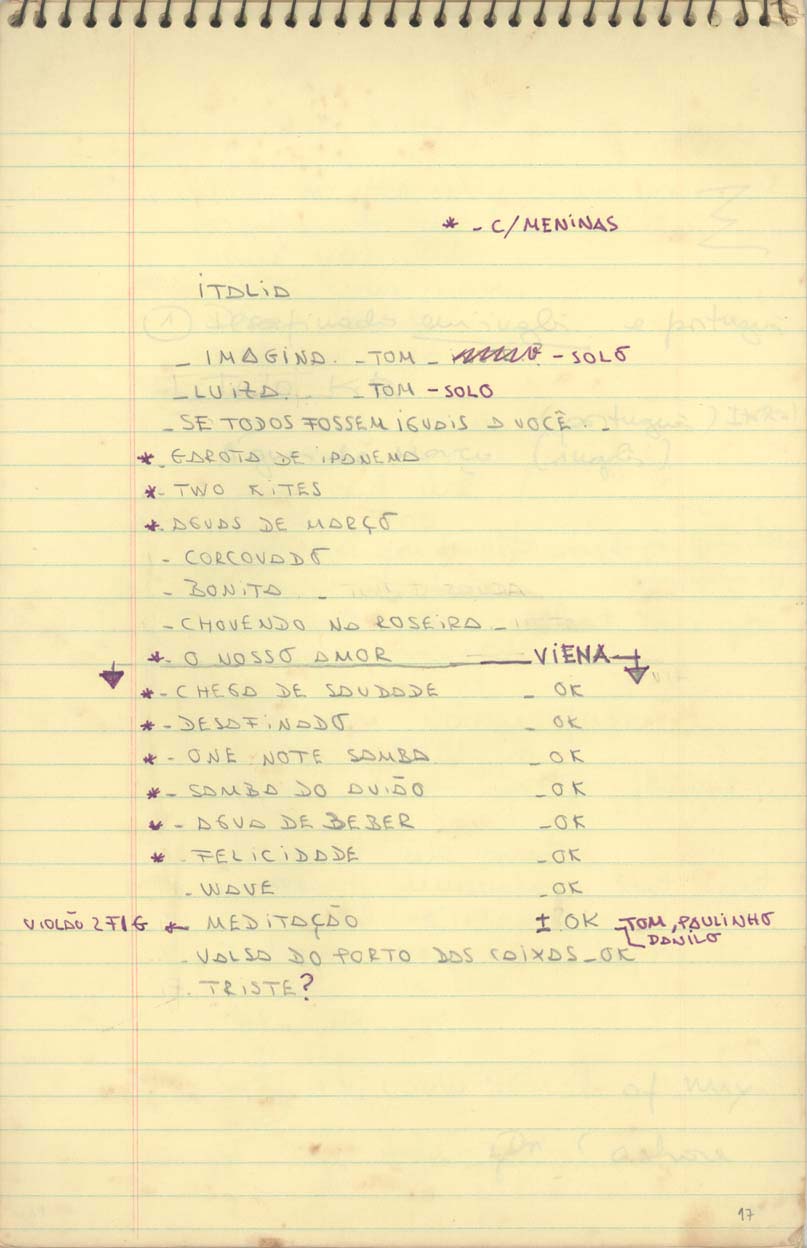 * - C/ MENINAS
ITALIA
- IMAGINA. - TOM - - SOLO
- LUIZA. - TOM - SOLO
- SE TODOS FOSSEM IGUAIS A VOCÊ. -
* - GAROTA DE IPANEMA
* - TWO KITES
* - AGUAS DE MARÇO
- CORCOVADO
- BONITA -
- CHOVENDO NA ROSEIRA -
* - O NOSSO AMOR VIENA
* - CHEGA DE SAUDADE - OK
* - DESAFINADO - OK
* - ONE NOTE SAMBA - OK
* - SAMBA DO AVIÃO - OK
* - AGUA DE BEBER - OK
* - FELICIDADE - OK
- WAVE - OK
VIOLÃO * - MEDITAÇÃO ± OK - TOM, PAULINHO
DANILO
- VALSA DO PORTO DAS CAIXAS - OK
- TRISTE?
17